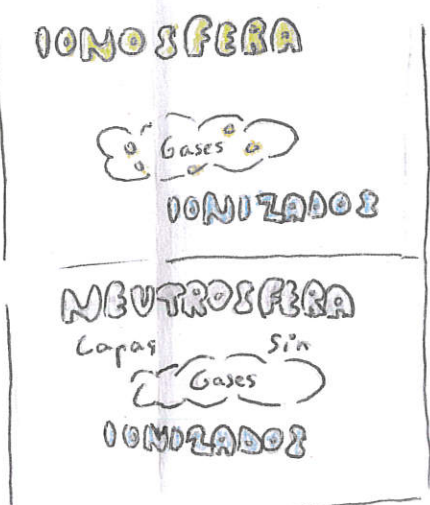 IONOSFERA
Gases
IONIZADOS
NEUTROSFERA
Capas Sin
Gases
IONIZADOS